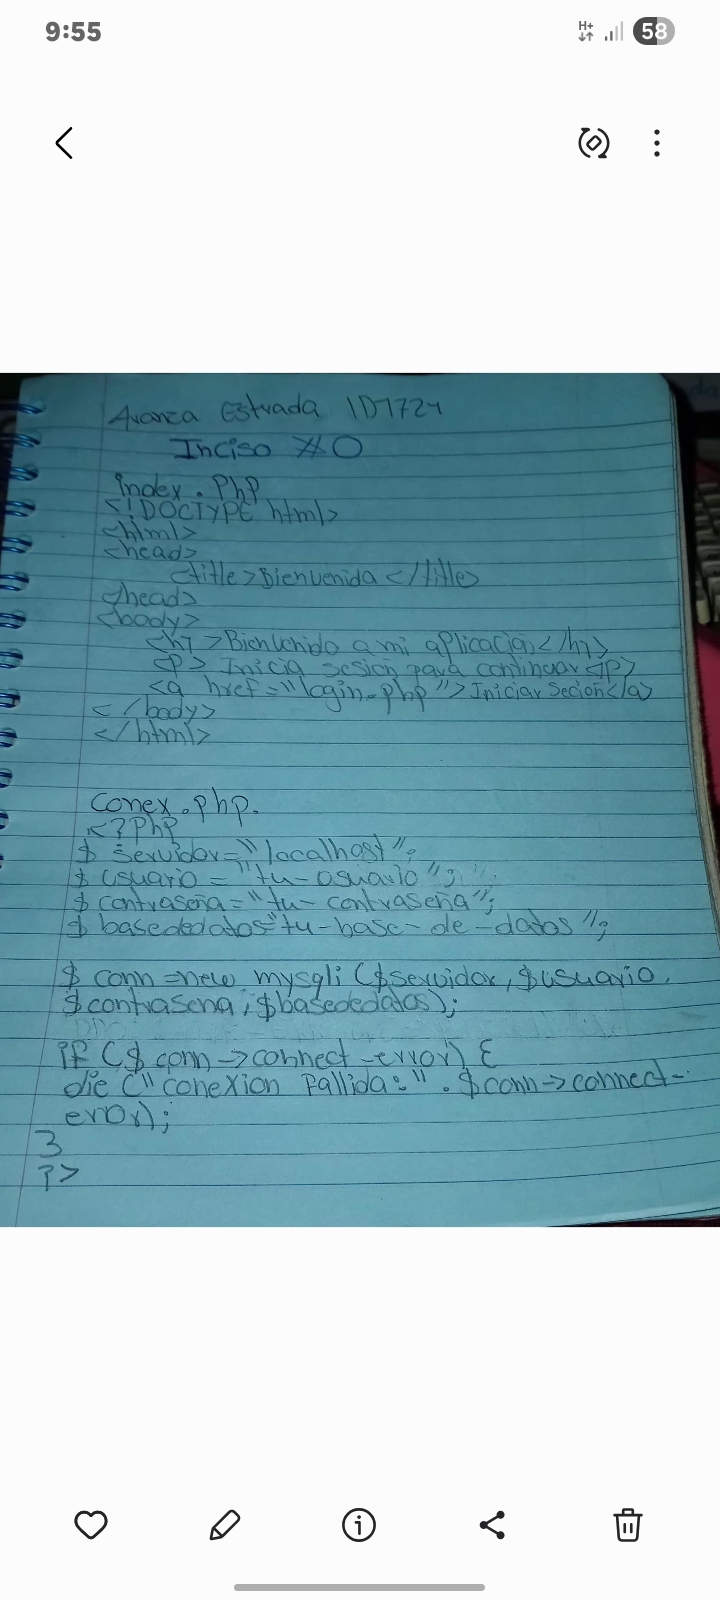 9:55
H+
58
Avanza Estrada 1D1724
Inciso #0
index.php
<!DOCTYPE html>
<html>
<head>
<title>Bienvenida</title>
</head>
<body>
<h1>Bienvenido a mi aplicacion</h1>
<p> Inicia sesion para continuar </p>
<a href="login.php">Iniciar Secion</a>
</body>
</html>
Conex.php.
<?Php
$ servidor="localhost";
$ usuario = "tu-usuario";
$ contraseña="tu-contraseña";
$ basededatos="tu-base-de-datos";
$ conn =new mysqli ($servidor, $usuario,
$contrasena, $basededatos);
if ($ conn ->connect-error) {
die ("conexion fallida:" . $conn->connect-
error);
}
?>